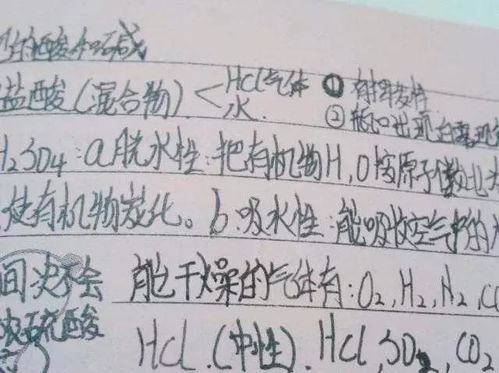 的酸和碱
盐酸(混合物)< HCl气体 ① 有挥发性
水. ② 瓶口出现白雾现
H₂SO₄:a.脱水性:把有机物H,O按原子个数比
使有机物炭化。b.吸水性:能吸收空气中的
间决不会 能干燥的气体有:O₂,H₂,N₂,CO
浓硫酸 HCl.(中性).HCl,SO₂,CO₂